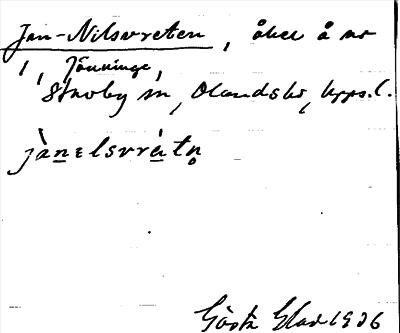 Jan-Nilsvreten, åker å nr
1, Jönninge,
Skuby sn, Olandshd, Upps.l.
jànɛlsvrètn̥
Gösta Elad 1936